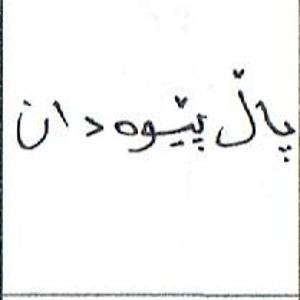 پاڵ پێوه دان